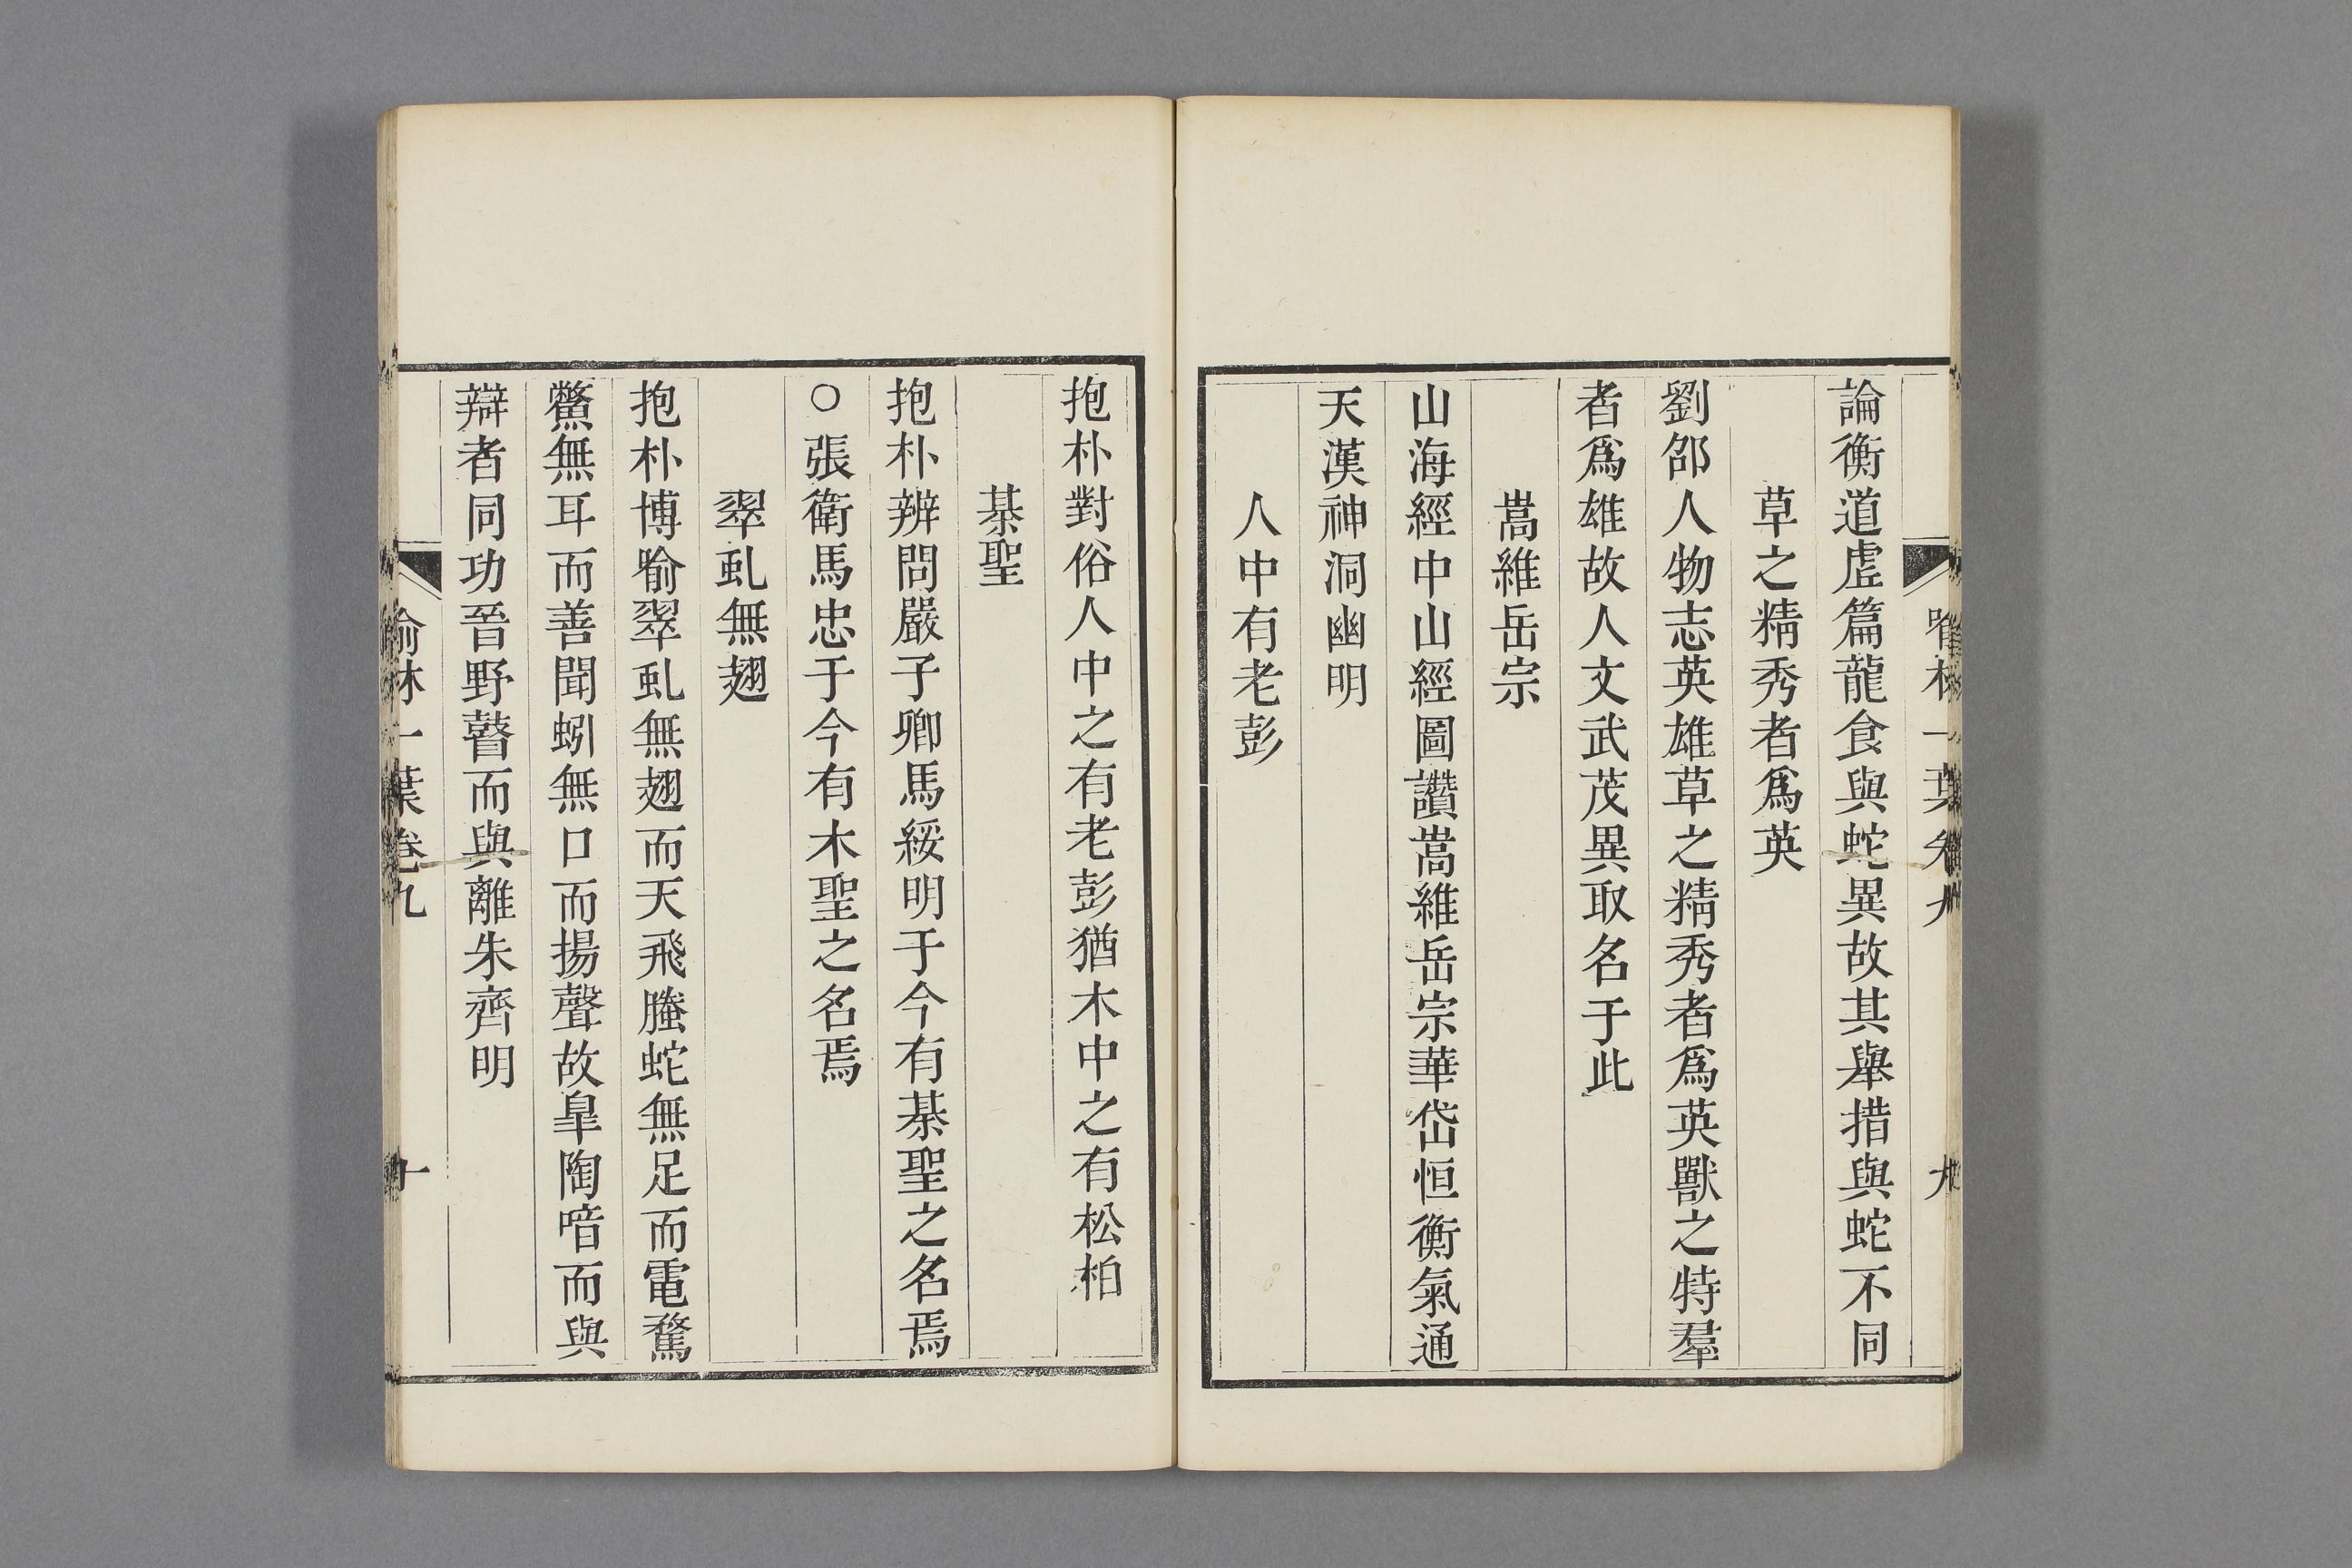 論衡道虛篇龍食與蛇異故其舉措與蛇不同
草之精秀者爲英
劉邵人物志英雄草之精秀者爲英獸之特羣
者爲雄故人文武茂異取名于此
嵩維岳宗
山海經中山經圖讚嵩維岳宗華岱恒衡氣通
天漢神洞幽明
人中有老彭
抱朴對俗人中之有老彭猶木中之有松柏
棊聖
抱朴辨問嚴子卿馬綏明于今有棊聖之名焉
○張衛馬忠于今有木聖之名焉
翠虬無翅
抱朴博喻翠虬無翅而天飛螣蛇無足而電騖
鱉無耳而善聞蚓無口而揚聲故臯陶喑而與
辯者同功晉野瞽而與離朱齊明
喻林一葉卷九
十